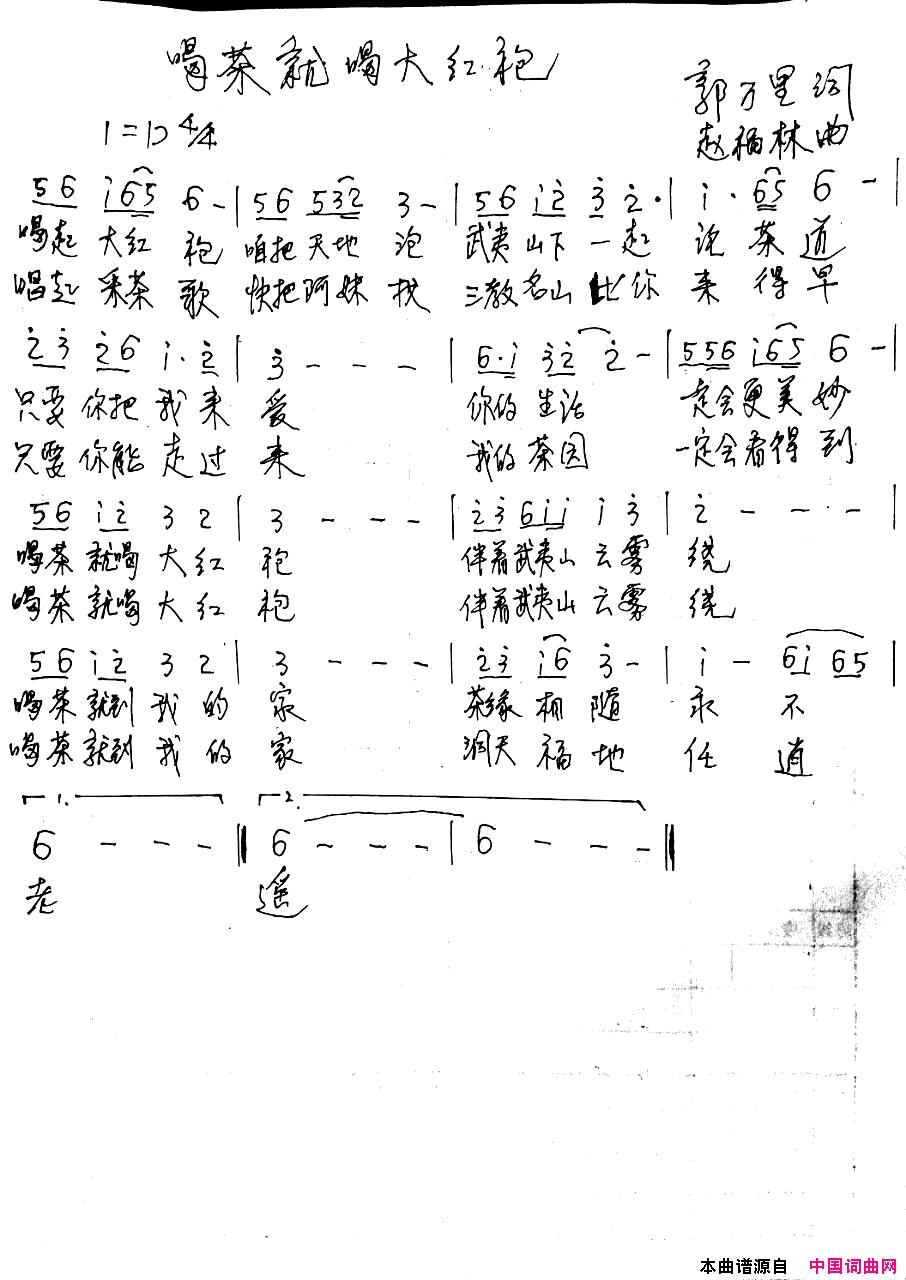 喝茶就喝大红袍
郭万里词
1=D 4/4
赵福林曲
56 i65 6- | 56 532 3- | 56 i2 3 2· | i·65 6- |
喝起 大红 袍 咱把 天地 泡 武夷 山下 一起 论 茶 道
唱起 采茶 歌 快把阿妹 找 三教名山 比你 来 得 早
23 26 i·2 | 3 - - - | 6·i 32 2- | 556 i65 6- |
只要 你把 我来 爱 你的 生活 一定会更美 妙
只要 你能 走过 来 我的 茶园 一定会看得 到
56 i2 3 2 | 3 - - - | 23 6ii i 3 | 2 - - - |
喝茶 就喝 大 红 袍 伴着武夷山 云雾 绕
喝茶 就喝 大 红 袍 伴着武夷山 云雾 绕
56 i2 3 2 | 3 - - - | 23 i6 3- | i - 6i 65 |
喝茶 就到 我 的 家 茶缘 相 随 永 不
喝茶 就到 我 的 家 洞天 福 地 任 逍
1. 2.
6 - - - || 6 - - - | 6 - - - ||
老 遥
本曲谱源自 中国词曲网